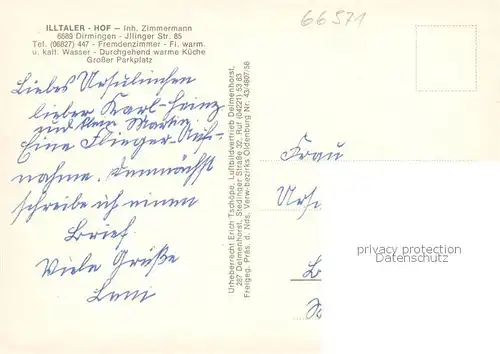 ILLTALER - HOF — Inh. Zimmermann
6689 Dirmingen - Jllinger Str. 85
Tel. (06827) 447 - Fremdenzimmer - Fl. warm.
u. kalt. Wasser - Durchgehend warme Küche
Großer Parkplatz
66571
Liebes Ursulinchen
lieber Karl-Heinz
und klein Martin
Eine Flieger-Auf-
nahme. Demnächst
schreibe ich einen
Brief.
Viele Grüße
Leni
Urheberrecht Erich Tschöpe, Luftbildvertrieb Delmenhorst,
287 Delmenhorst, Stedinger Straße 32, Ruf (04221) 53 83
Freigeg. Präs. d. Nds. Verw-bezirks Oldenburg Nr. 43/4807/58
Frau
Urs
privacy protection
AK Pool